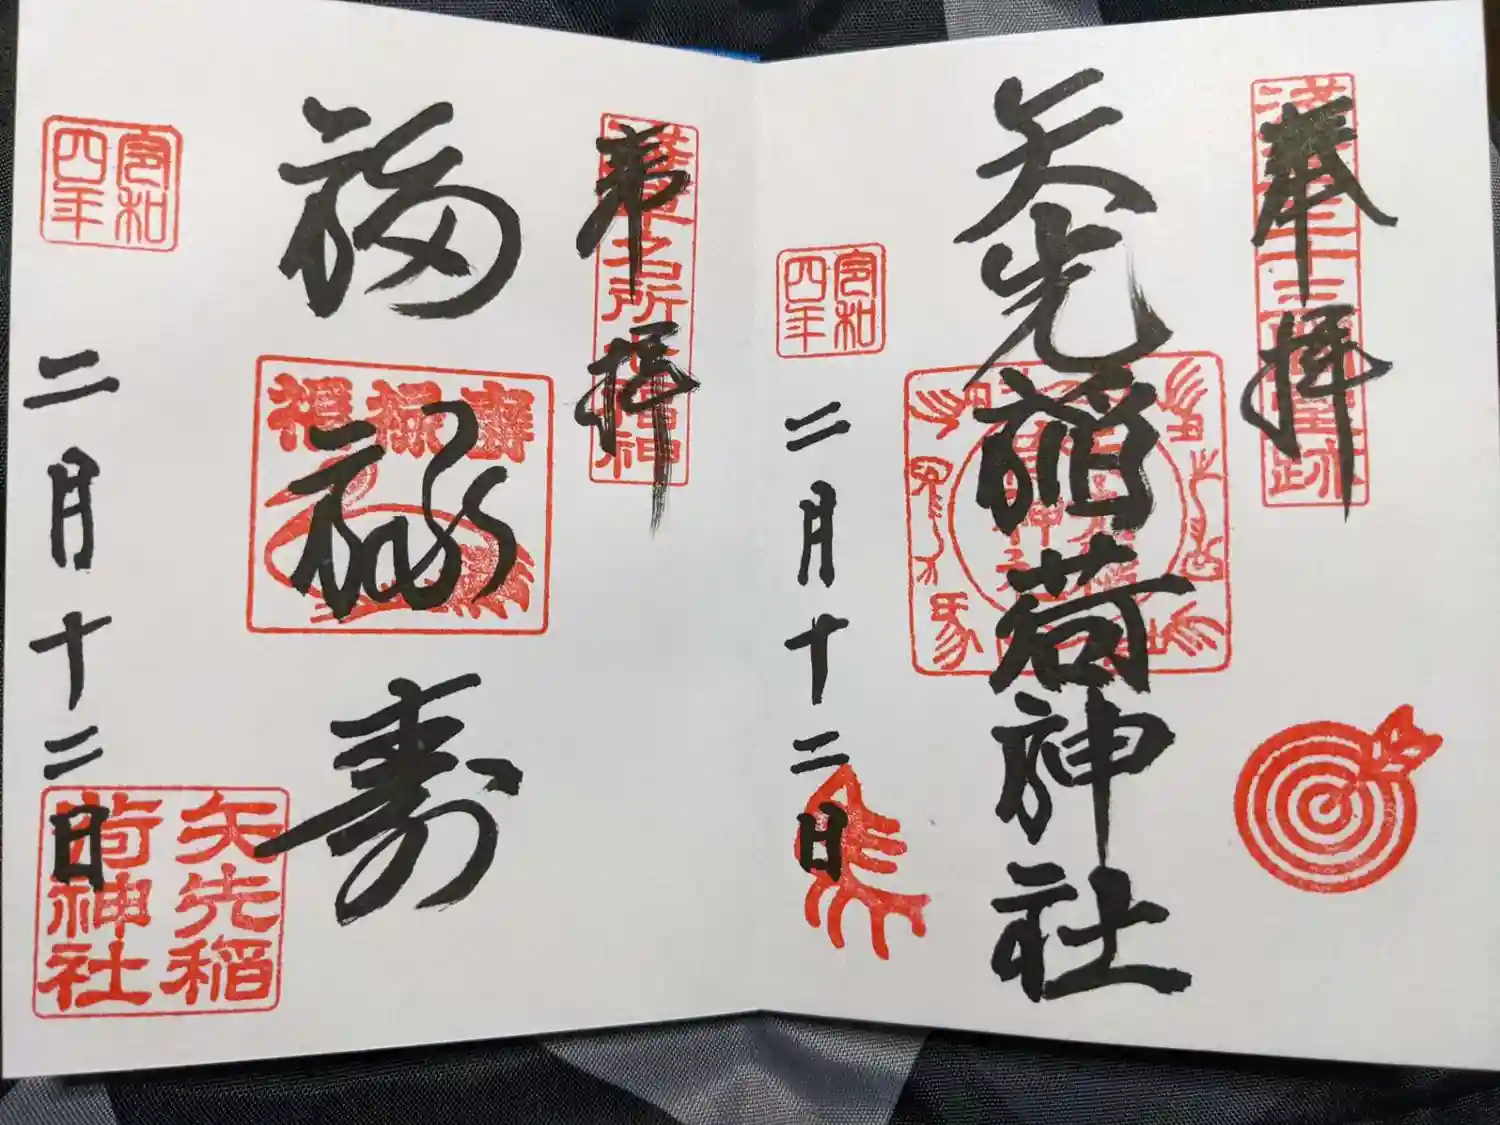 奉拝
矢先稲荷神社
令和
四年
二月十二日
奉拝
福
禄
寿
令和
四年
二月十二日
福禄寿
矢先稲
荷神社